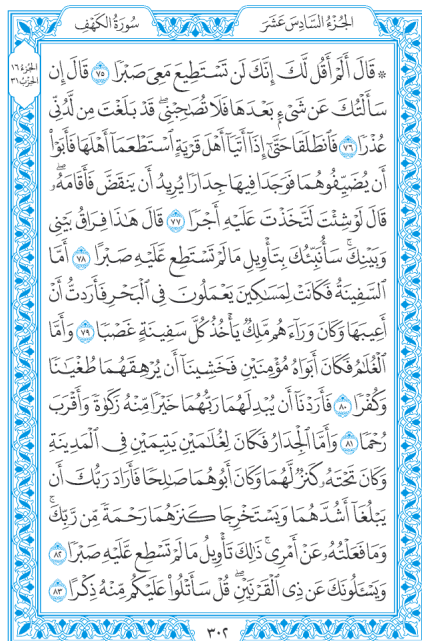 الجُزْءُ السَّادِسَ عَشَرَ
سُورَةُ الكَهْفِ
الجزء ١٦
الحزب ٣١
۞ قَالَ أَلَمْ أَقُل لَّكَ إِنَّكَ لَن تَسْتَطِيعَ مَعِيَ صَبْرًا ٧٥ قَالَ إِن
سَأَلْتُكَ عَن شَيْءٍ بَعْدَهَا فَلَا تُصَٰحِبْنِي ۖ قَدْ بَلَغْتَ مِن لَّدُنِّي
عُذْرًا ٧٦ فَٱنطَلَقَا حَتَّىٰٓ إِذَآ أَتَيَآ أَهْلَ قَرْيَةٍ ٱسْتَطْعَمَآ أَهْلَهَا فَأَبَوْا۟
أَن يُضَيِّفُوهُمَا فَوَجَدَا فِيهَا جِدَارًا يُرِيدُ أَن يَنقَضَّ فَأَقَامَهُۥ ۖ
قَالَ لَوْ شِئْتَ لَتَّخَذْتَ عَلَيْهِ أَجْرًا ٧٧ قَالَ هَٰذَا فِرَاقُ بَيْنِي
وَبَيْنِكَ ۚ سَأُنَبِّئُكَ بِتَأْوِيلِ مَا لَمْ تَسْتَطِع عَّلَيْهِ صَبْرًا ٧٨ أَمَّا
ٱلسَّفِينَةُ فَكَانَتْ لِمَسَٰكِينَ يَعْمَلُونَ فِي ٱلْبَحْرِ فَأَرَدتُّ أَنْ
أَعِيبَهَا وَكَانَ وَرَآءَهُم مَّلِكٌ يَأْخُذُ كُلَّ سَفِينَةٍ غَصْبًا ٧٩ وَأَمَّا
ٱلْغُلَٰمُ فَكَانَ أَبَوَاهُ مُؤْمِنَيْنِ فَخَشِينَآ أَن يُرْهِقَهُمَا طُغْيَٰنًا
وَكُفْرًا ٨٠ فَأَرَدْنَآ أَن يُبْدِلَهُمَا رَبُّهُمَا خَيْرًا مِّنْهُ زَكَوٰةً وَأَقْرَبَ
رُحْمًا ٨١ وَأَمَّا ٱلْجِدَارُ فَكَانَ لِغُلَٰمَيْنِ يَتِيمَيْنِ فِي ٱلْمَدِينَةِ
وَكَانَ تَحْتَهُۥ كَنزٌ لَّهُمَا وَكَانَ أَبُوهُمَا صَٰلِحًا فَأَرَادَ رَبُّكَ أَن
يَبْلُغَآ أَشُدَّهُمَا وَيَسْتَخْرِجَا كَنزَهُمَا رَحْمَةً مِّن رَّبِّكَ ۚ
وَمَا فَعَلْتُهُۥ عَنْ أَمْرِي ۚ ذَٰلِكَ تَأْوِيلُ مَا لَمْ تَسْطِع عَّلَيْهِ صَبْرًا ٨٢
وَيَسْـَٔلُونَكَ عَن ذِي ٱلْقَرْنَيْنِ ۖ قُلْ سَأَتْلُوا۟ عَلَيْكُم مِّنْهُ ذِكْرًا ٨٣
٣٠٢